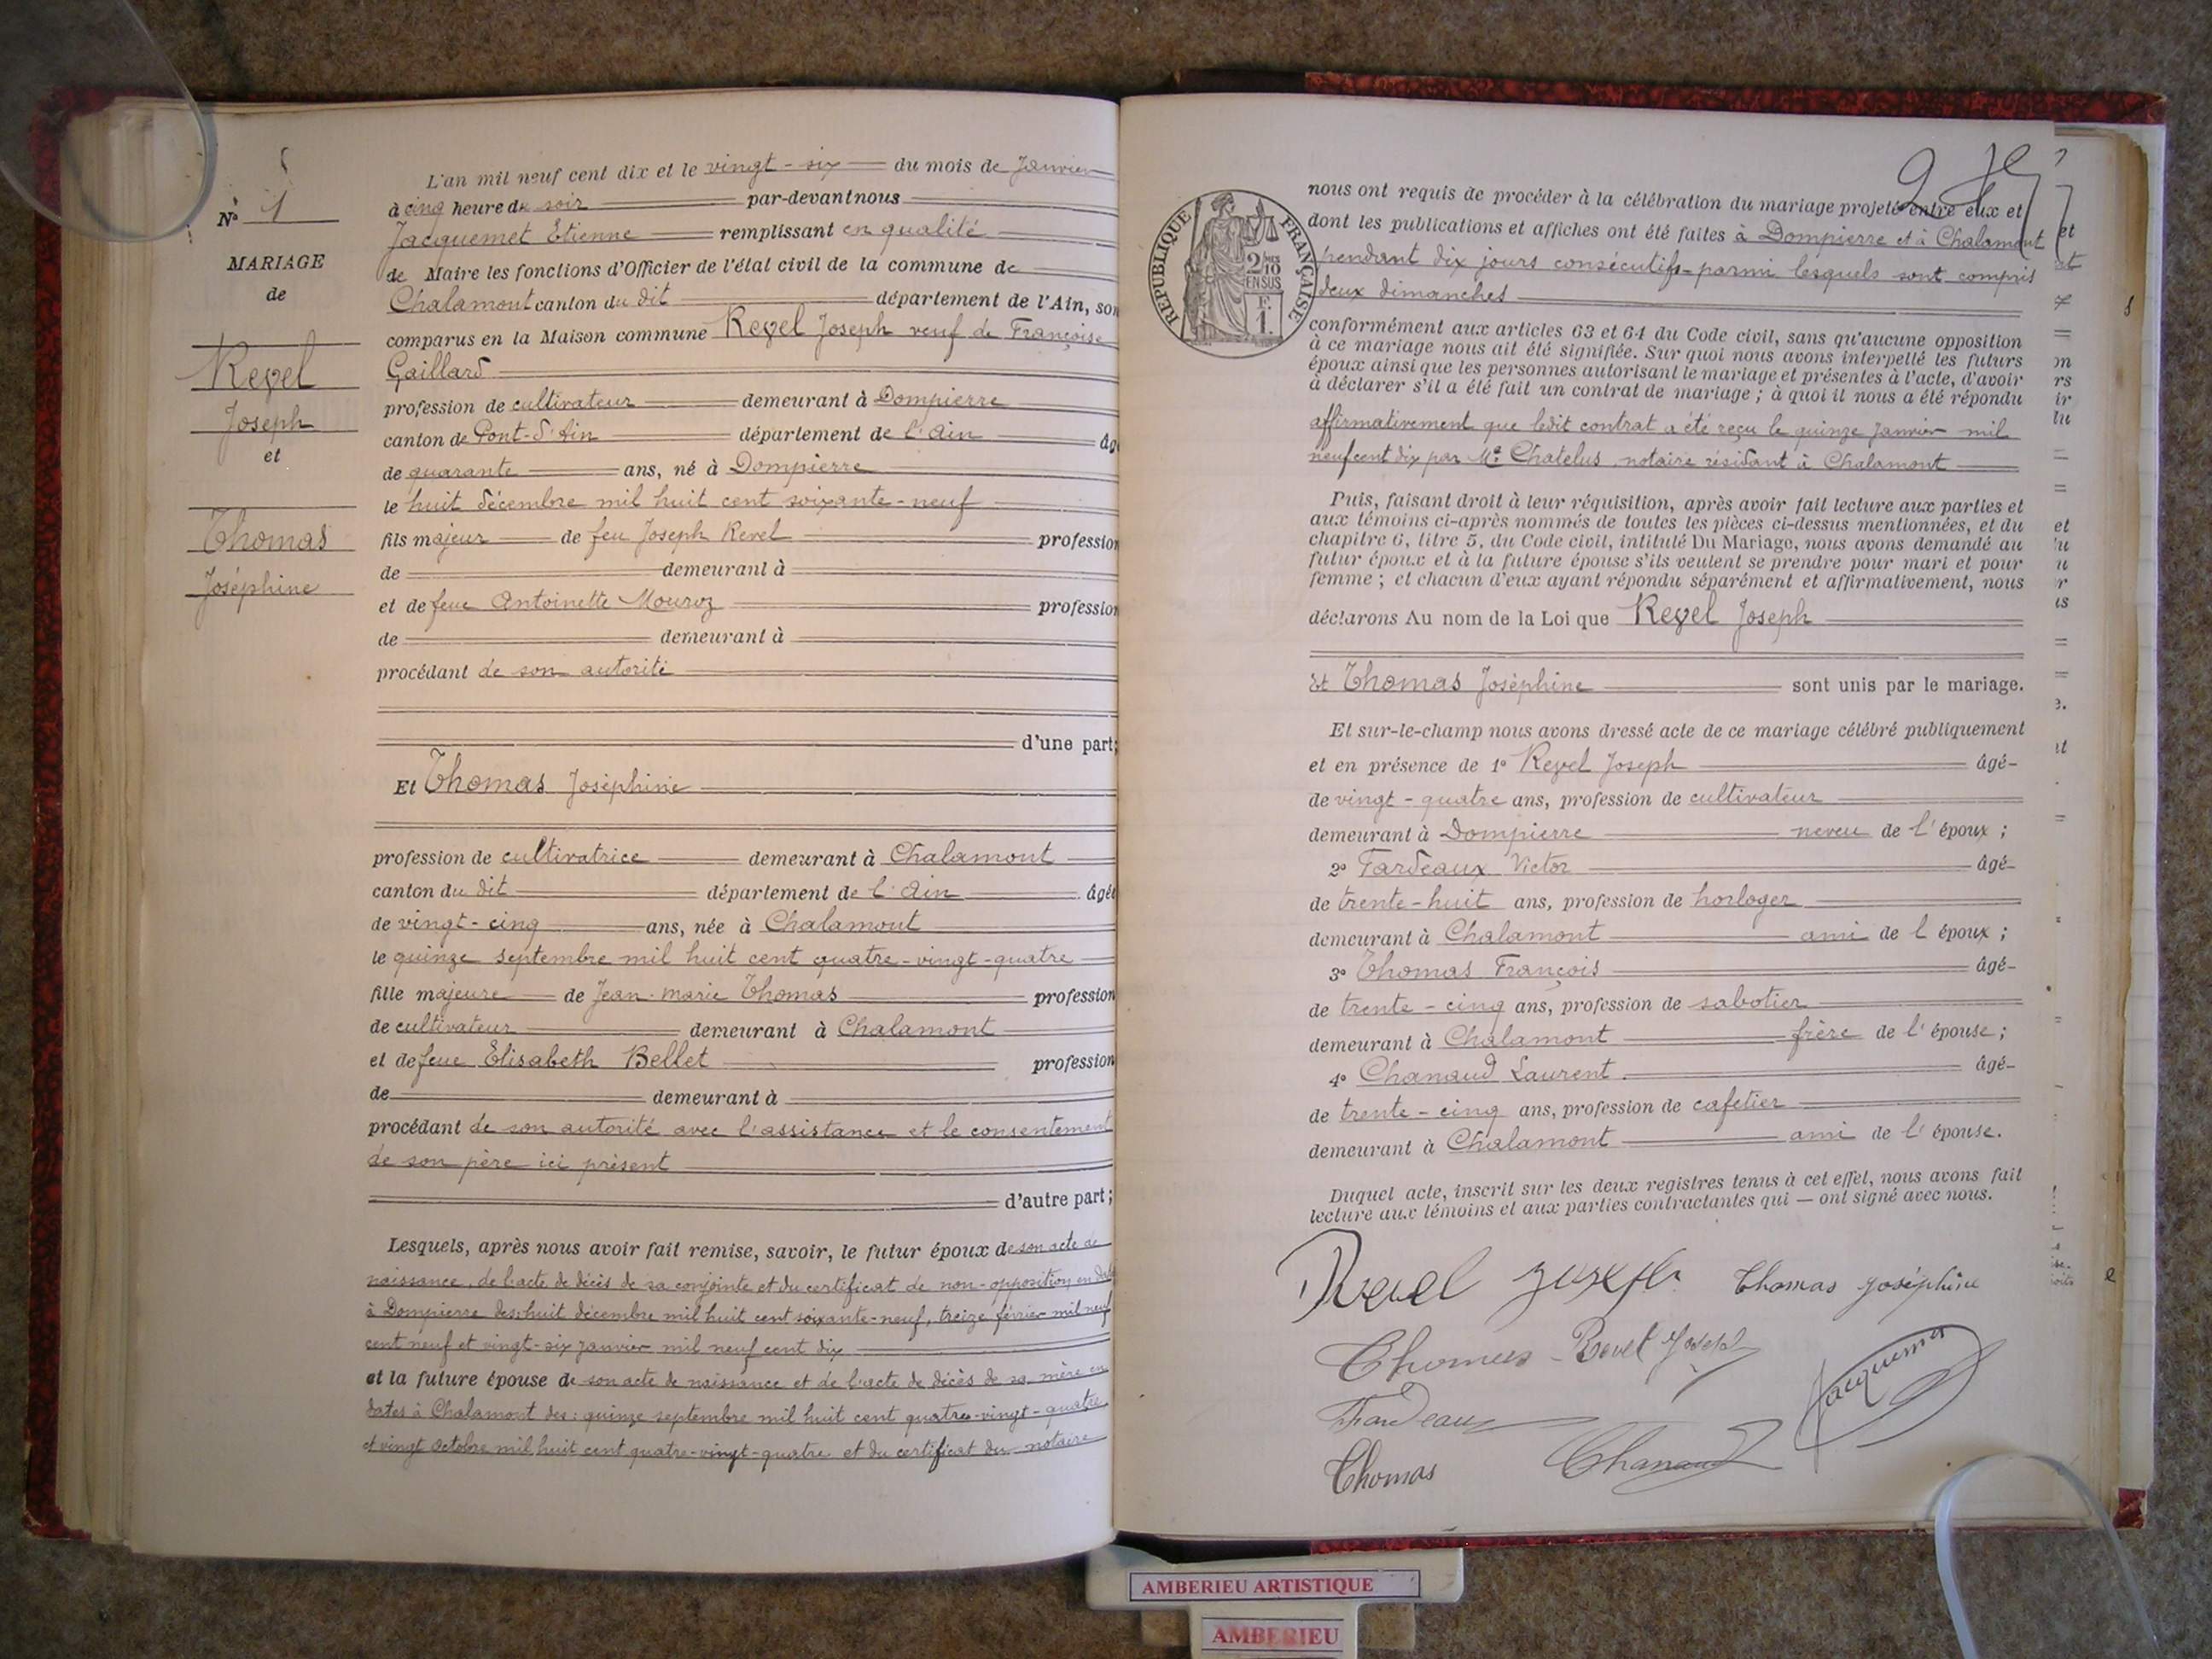 N° 1
MARIAGE
de
Revel
Joseph
et
Thomas
Joséphine
L'an mil neuf cent dix et le vingt-six du mois de Janvier
à cinq heure du soir par-devant nous
Jacquemet Etienne remplissant en qualité
de Maire les fonctions d'Officier de l'état civil de la commune de
Chalamont canton du dit département de l'Ain, son
comparus en la Maison commune Revel Joseph veuf de Françoise
Gaillard
profession de cultivateur demeurant à Dompierre
canton de Pont-d'Ain département de l'Ain âg
de quarante ans, né à Dompierre
le huit décembre mil huit cent soixante-neuf
fils majeur de feu Joseph Revel profession
de demeurant à
et de feue Antoinette Mouroz profession
de demeurant à
procédant de son autorité
d'une part;
Et Thomas Joséphine
profession de cultivatrice demeurant à Chalamont
canton du dit département de l'Ain âgée
de vingt-cinq ans, née à Chalamont
le quinze septembre mil huit cent quatre-vingt-quatre
fille majeure de Jean-marie Thomas profession
de cultivateur demeurant à Chalamont
et de feue Elisabeth Bellet profession
de demeurant à
procédant de son autorité avec l'assistance et le consentement
de son père ici présent
d'autre part;
Lesquels, après nous avoir fait remise, savoir, le futur époux de son acte de
naissance, de l'acte de décès de sa conjointe et du certificat de non-opposition, en date
à Dompierre des: huit décembre mil huit cent soixante-neuf, treize février mil neuf
cent neuf et vingt-six janvier mil neuf cent dix
et la future épouse de son acte de naissance et de l'acte de décès de sa mère en
dates à Chalamont des: quinze septembre mil huit cent quatre-vingt-quatre
et vingt octobre mil huit cent quatre-vingt-quatre et du certificat du notaire
RÉPUBLIQUE FRANÇAISE
2/10
EN SUS
F.
1.
nous ont requis de procéder à la célébration du mariage projeté entre eux et
dont les publications et affiches ont été faites à Dompierre et à Chalamont
pendant dix jours consécutifs parmi lesquels sont compris
deux dimanches
conformément aux articles 63 et 64 du Code civil, sans qu'aucune opposition
à ce mariage nous ait été signifiée. Sur quoi nous avons interpellé les futurs
époux ainsi que les personnes autorisant le mariage et présentes à l'acte, d'avoir
à déclarer s'il a été fait un contrat de mariage; à quoi il nous a été répondu
affirmativement que ledit contrat a été reçu le quinze Janvier mil
neuf cent dix par Me Chatelus notaire résidant à Chalamont
Puis, faisant droit à leur réquisition, après avoir fait lecture aux parties et
aux témoins ci-après nommés de toutes les pièces ci-dessus mentionnées, et du
chapitre 6, titre 5, du Code civil, intitulé Du Mariage, nous avons demandé au
futur époux et à la future épouse s'ils veulent se prendre pour mari et pour
femme; et chacun d'eux ayant répondu séparément et affirmativement, nous
déclarons Au nom de la Loi que Revel Joseph
Et Thomas Joséphine sont unis par le mariage.
Et sur-le-champ nous avons dressé acte de ce mariage célébré publiquement
et en présence de 1° Revel Joseph âgé
de vingt-quatre ans, profession de cultivateur
demeurant à Dompierre neveu de l'époux;
2° Fardeaux Victor âgé
de trente-huit ans, profession de horloger
demeurant à Chalamont ami de l époux;
3° Thomas François âgé
de trente-cinq ans, profession de sabotier
demeurant à Chalamont frère de l'épouse;
4° Chanaud Laurent âgé
de trente-cinq ans, profession de cafetier
demeurant à Chalamont ami de l'épouse.
Duquel acte, inscrit sur les deux registres tenus à cet effet, nous avons fait
lecture aux témoins et aux parties contractantes qui — ont signé avec nous.
Revel Joseph Thomas Joséphine
Thomas Revel Joseph
Jacquemet
Fardeaux
Thomas Chanaud
AMBERIEU ARTISTIQUE
AMBERIEU